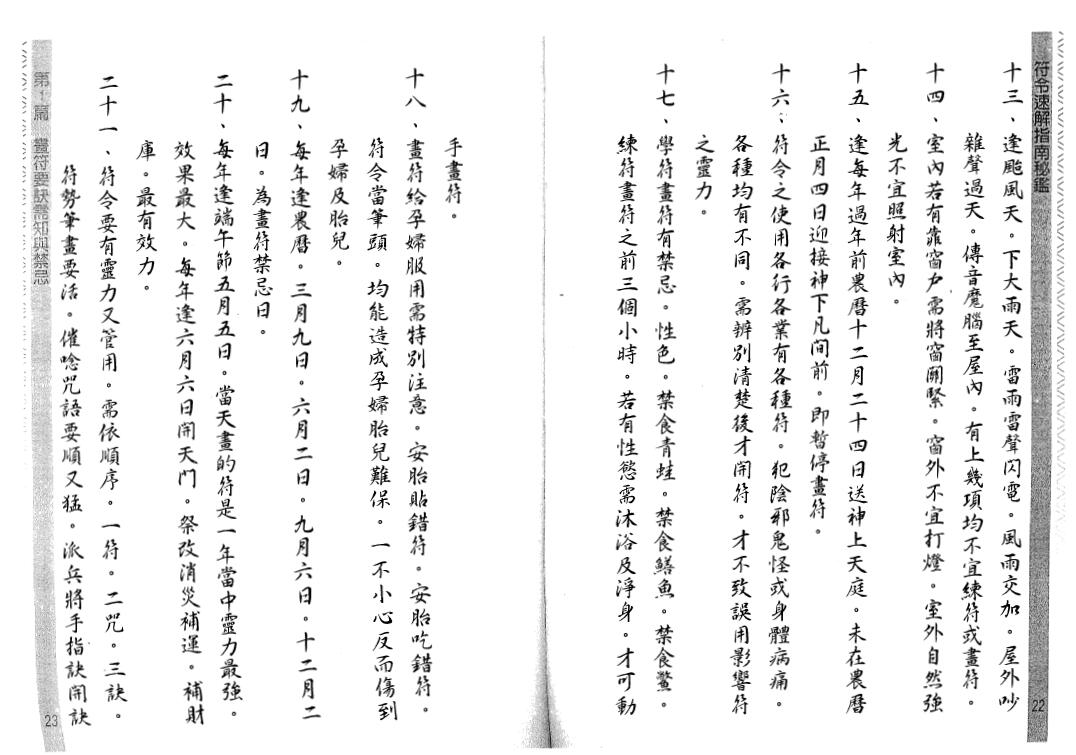 符令速解指南秘鑑
十三、逢颱風天。下大雨天。雷雨雷聲閃電。風雨交加。屋外吵
雜聲過天。傳音魔腦至屋內。有上幾項均不宜練符或畫符。
十四、室內若有靠窗户需將窗關緊。窗外不宜打燈。室外自然強
光不宜照射室內。
十五、逢每年過年前農曆十二月二十四日送神上天庭。未在農曆
正月四日迎接神下凡間前。即暫停畫符。
十六、符令之使用各行各業有各種符。犯陰邪鬼怪或身體病痛。
各種均有不同。需辨別清楚後才開符。才不致誤用影響符
之靈力。
十七、學符畫符有禁忌。性色。禁食青蛙。禁食鱔魚。禁食鱉。
練符畫符之前三個小時。若有性慾需沐浴及淨身。才可動
22
手畫符。
十八、畫符給孕婦服用需特別注意。安胎貼錯符。安胎吃錯符。
符令當筆頭。均能造成孕婦胎兒難保。一不小心反而傷到
孕婦及胎兒。
十九、每年逢農曆。三月九日。六月二日。九月六日。十二月二
日。為畫符禁忌日。
二十、每年逢端午節五月五日。當天畫的符是一年當中靈力最強。
效果最大。每年逢六月六日開天門。祭改消災補運。補財
庫。最有效力。
二十一、符令要有靈力又管用。需依順序。一符。二咒。三訣。
符勢筆畫要活。催唸咒語要順又猛。派兵將手指訣開訣
第1篇 畫符要訣需知與禁忌
23